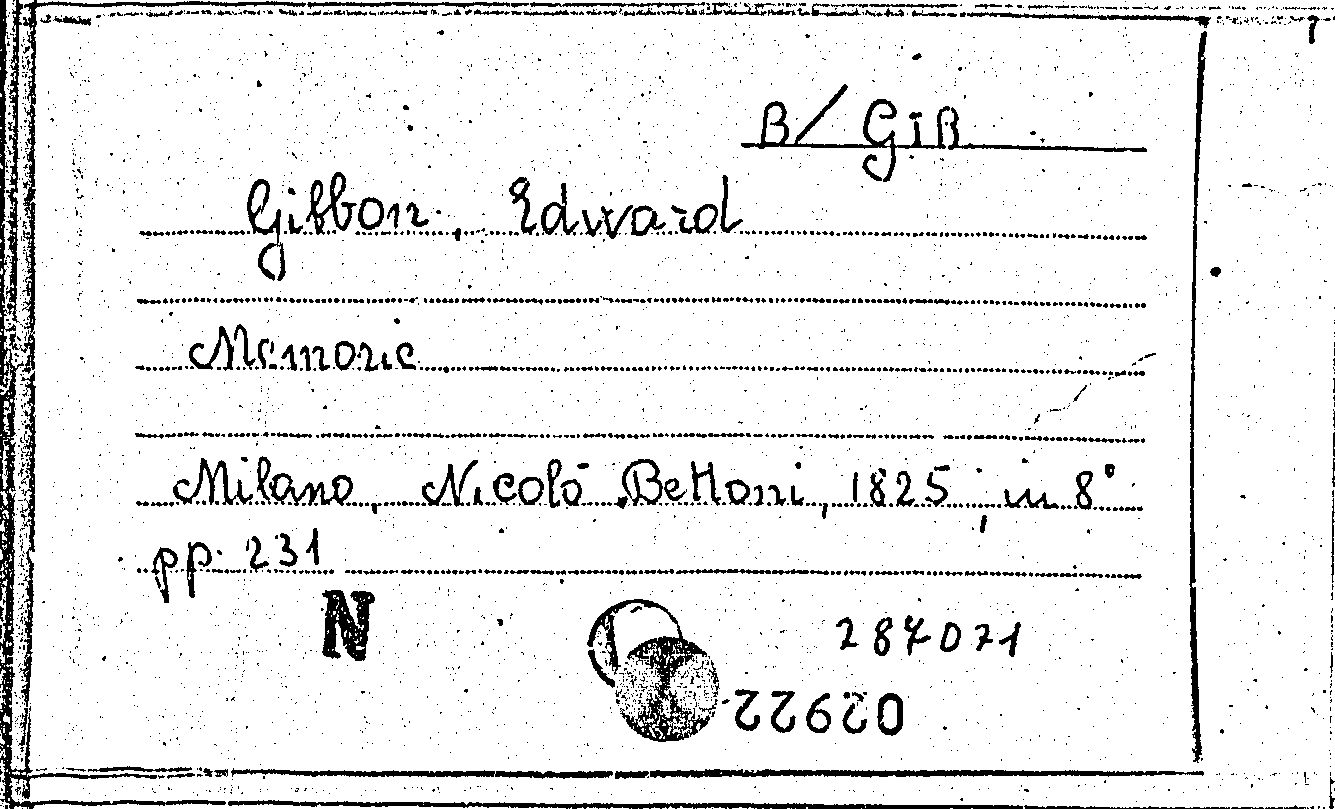 B/ GIB
Gibbon, Edward
Memorie
Milano, Nicolò Bettoni, 1825, in 8°
pp. 231
N
287071
02922